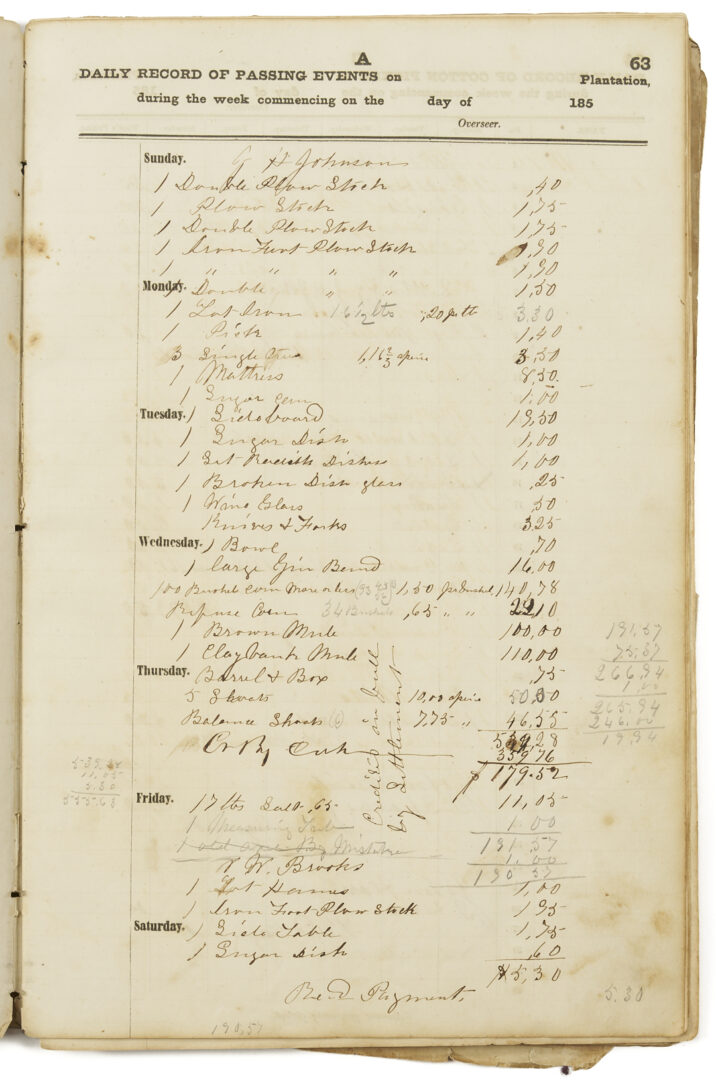 A 63
DAILY RECORD OF PASSING EVENTS on Plantation,
during the week commencing on the day of 185
Overseer.
Sunday. G H Johnson
1 Double Plow Stock ,40
1 Plow Stock 1,75
1 Double Plow Stock 1,75
1 Iron Foot Plow Stock 1,90
1 " " " " 1,90
Monday. 1 Double " " 1,50
1 Lot Iron 16 1/2 lbs ,20 pr lb 3.30
1 Pick 1,40
3 Single Trees 1,16 2/3 apiece 3,50
1 Mattress 8,50.
1 Sugar 1,00
Tuesday. 1 Sideboard 19,50
1 Sugar Dish 1,00
1 Set Reddish Dishes 1,00
1 Broken Dish glass ,25
1 Wine Glass 50
Knives & Forks 3.25
Wednesday. 1 Bowl ,70
1 large Gin 16,00
100 Bushels Corn More or less 1,50 per Bushel 140,78
Refuse Corn 34 Bushels ,65 " " 22,10
1 Brown Mule 100,00 191.57
1 Claybank Mule 110,00 75.37
Thursday. Barrel & Box ,75 266.94
1.00
5 Shoats 10,00 apiece 50,00 265.94
Balance Shoats (6) 7,75 " 46,55 246.00
19.94
Cr By Cash 28
359 76
$179.52
539.28
11.05
5.30
555.63
Credited in full
by Settlement
Friday. 17 lbs Salt ,65 11,05
1 Measuring Tub 1 00
1 old By Mistake 191,57
1.00
190 57
W. Brooks
1 Lot Hames 1,00
1 Iron Foot Plow Stock 1,95
Saturday. 1 Side Table 1,75
1 Sugar Dish ,60
$5,30
Recd Payment, 5.30
190,57